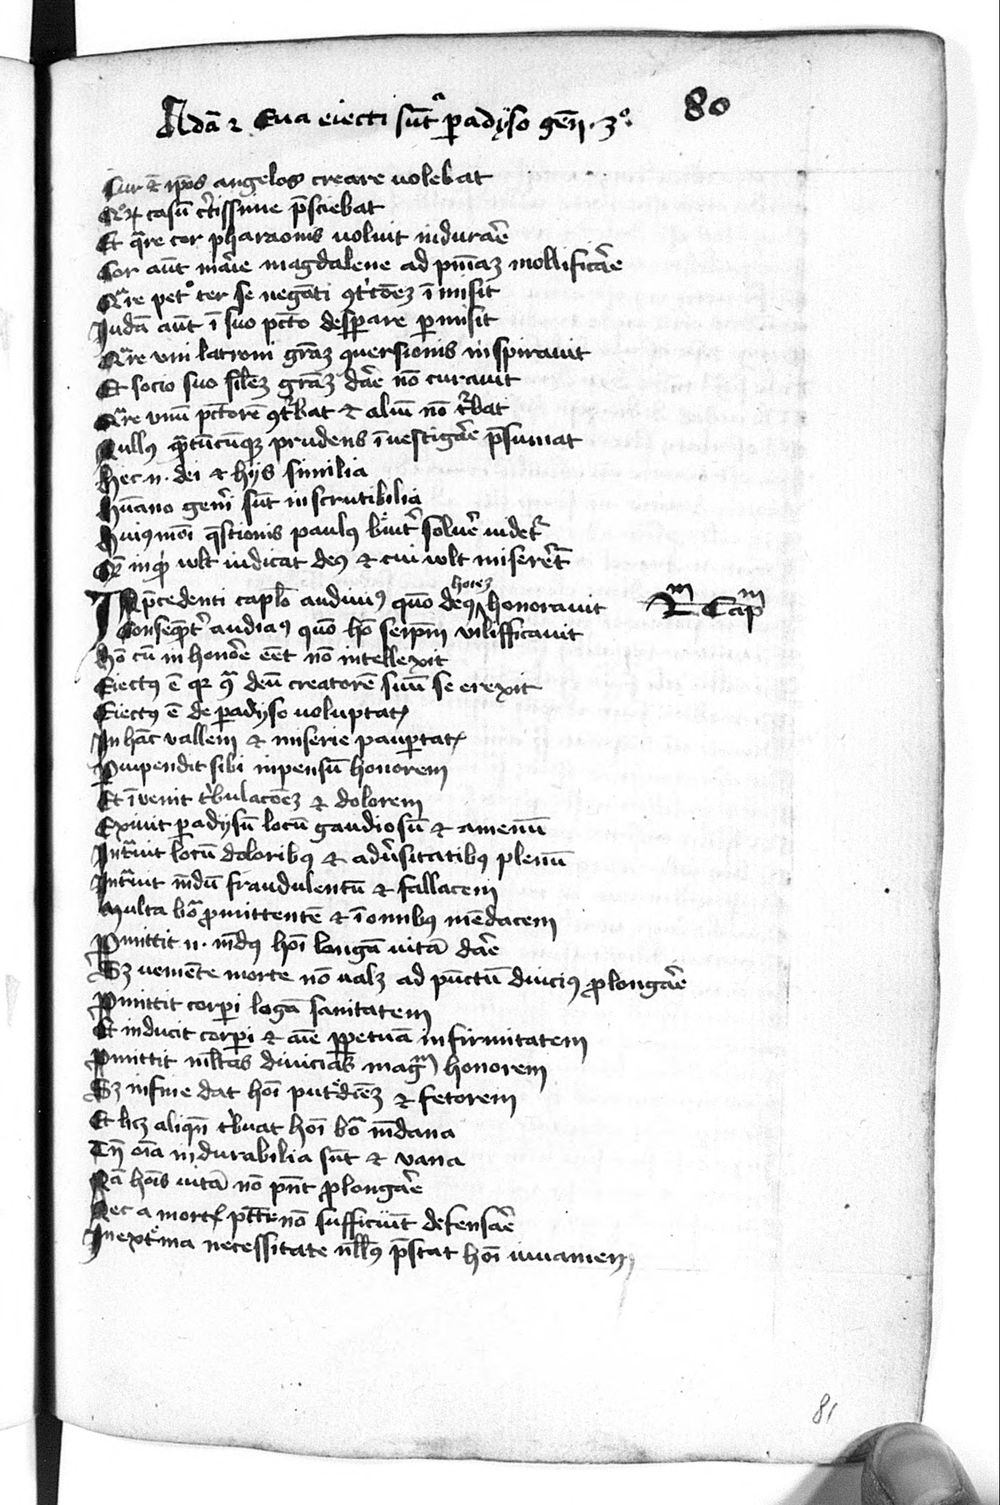 Adā ⁊ Eua eiecti sūt a padyso geñ. 3o. 80
Cur ⁊ ip̄os angelos creare uolebat
Quoꝝ casū c̓tissime p̄sciebat
Et q̄re cor pharaonis uoluit indurar̄e
Cor aūt mar̄ie magdalene ad pn̄iaꝫ mollificar̄e
Qua̓re pet̓o ter se neganti ꝯt̓cōeꝫ īmisit
Iudā aūt ī suo pctō desꝑare ꝑmisit
Qua̓re vni latroni gr̄aꝫ ꝯuersionis inspirauit
Et socio suo sil̄eꝫ gr̄aꝫ dar̄e nō curauit
Qua̓re vnū pctorē ꝯt̓hat ⁊ aliū nō t̓hat
Nullꝰ q̄tūcūqꝫ prudens īuestigar̄e p̄sumat
Hec n. dei ⁊ hijs similia
Hūano gen̓i sūt inscrutibilia
Huiꝰmōi q̄stionis paulꝰ bu̓it̓ solu̓e uidet̓
Q̓ inq̓t uult indicat deꝰ ⁊ cui uult miseret̄
IN p̄cedenti cap̄lo audiuiꝰ quō deꝰ hoīeꝫ honorauit 2m Capm
Conseqn̄t̓ audiaꝰ quō hō seip̄m vilifficauit
Hō cū in honor̄e eēt nō intellexit
Eiectꝰ ē qꝛ ꝯa̓ deū creatorē suū se erexit
Eiectꝰ ē de padyso uoluptatꝭ
In hāc vallem ⁊ miserie pauꝑtatꝭ
Puipendit sibi inpensū honorem
Et īuenit t̓bulacōeꝫ ⁊ dolorem
Exiuit padysū locū gaudiosū ⁊ amenū
Int̓uit locū doloribꝰ ⁊ adu̓sitatibꝰ plenū
Int̓uit mūdū fraudulentū ⁊ fallacem
Multa boa ꝓmittentē ⁊ ī omnibꝰ mēdacem
Pmittit n. mūdꝰ hoī longā uitā dar̄e
Sꝫ veniēte morte nō ualꝫ ad pūctū diuciꝰ ꝓlongar̄e
Pmittit corpi lōgā sanitatem
Et inducit corpi ⁊ aīe ꝑpetuā infirmitatem
Pmittit ml̄tas diuicias magnū honorem
Sꝫ in fine dat hoī putr̓diēꝫ ⁊ fetorem
Et licꝫ aliqn̄ t̓buat hoī boa mūdana
Tn̄ oīa indurabilia sūt ⁊ vana
Nā hoīs uitā nō pn̄t ꝓlongar̄e
Nec a mortꝭ ptāte nō sufficiūt defensar̄e
In ext̓ma necessitate nullꝰ p̄stat hoī iuuamen
81